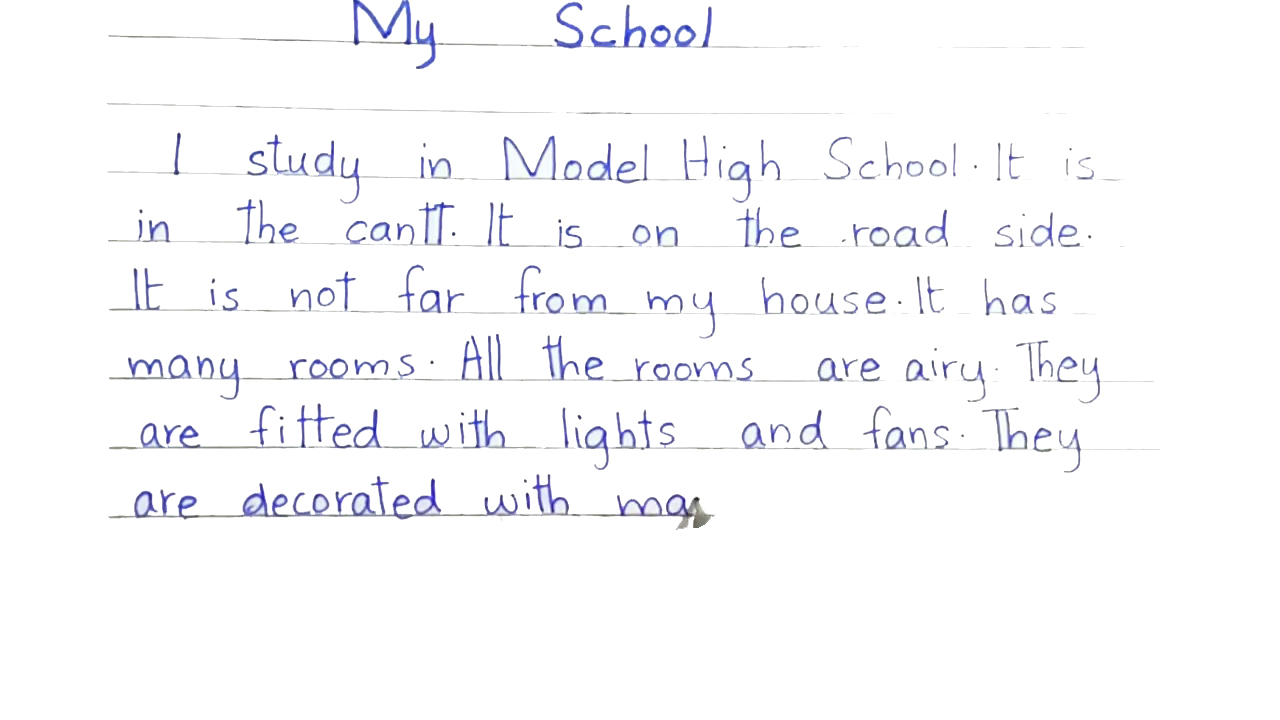 My School
I study in Model High School. It is
in the cantt. It is on the road side.
It is not far from my house. It has
many rooms. All the rooms are airy. They
are fitted with lights and fans. They
are decorated with